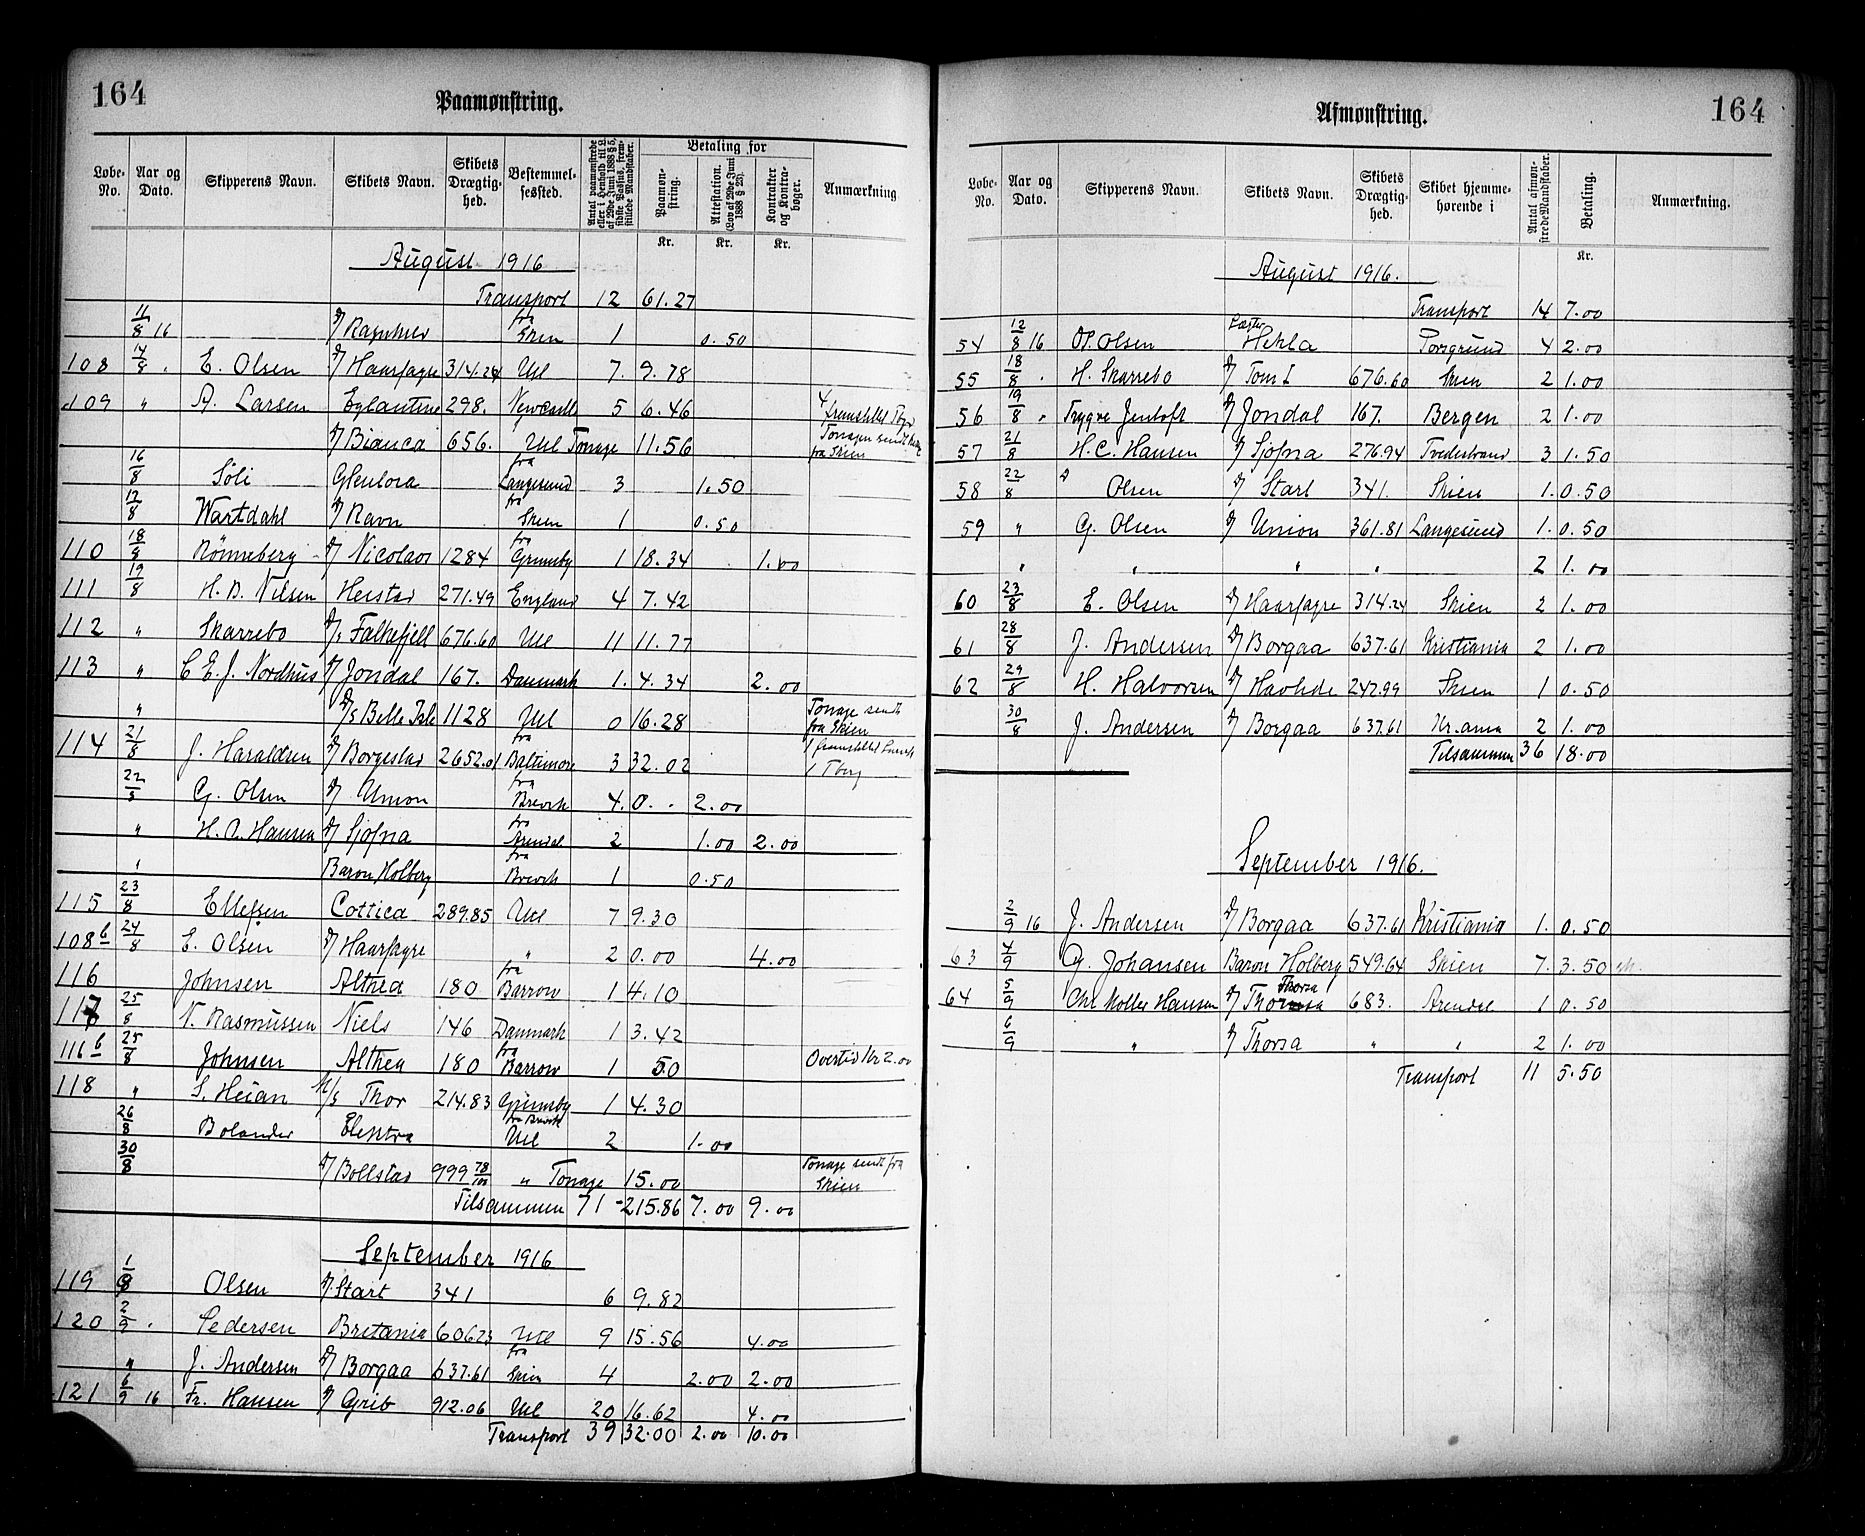 164
Paamønstring.
Løbe-No. | Aar og Dato. | Skipperens Navn. | Skibets Navn. | Skibets Drægtig-hed. | Bestemmel-sessted. | Antal paamønstrede eller i Henhold til L. af 29de Juni 1888 § 5, sidste Passus, frem-stillede Mandskaber. | Betaling for | Paamøn-string. | Attestation. (Lov af 29de Juni 1888 § 23). | Kontrakter og Kontra-bøger. | Anmærkning
Kr. | Kr. | Kr.
August 1916
Transport 12 61.27
11/8 16 Ragnhild fra Skien 1 0.50
108 14/8 E. Olsen Haarfagre 314.24 Utl 7. 9.78
109 " A. Larsen Eglantine 298. Newcastle 5 6.46
Bianca 656. Utl Tonnage 11.56 fra Skien
16/8 Søli Glenlora fra Langesund 3 1.50
Wartdahl Ravn fra Skien 1 0.50
110 18/8 Rönneberg Nicolaos 1284 fra Grimsby 1 18.34 1.00
111 19/8 H. B. Nilsen Heistad 271.49 England 4 7.42
112 " Skarrebo Falkefjell 676.60 Utl 11 11.77
113 " C E. J. Nordhus Jondal 167. Danmark 1. 4.34 2.00
" Belle Isle 1128 Utl 0 16.28 Tonnage sendt fra Skien
114 21/8 J. Haraldsen Borgestad 2652.01 fra Baltimore 3 32.02
22/8 G. Olsen Union fra Brevik 4. 0. 2.00
" Hansen Sjofna fra Arendal 2 1.00 2.00
Baron Holberg fra Brevik 1 0.50
115 23/8 Ellefsen Cottica 289.85 Utl 7 9.30
108b 24/8 E. Olsen Haarfagre " 2 0.00 4.00
116 Johnsen Althea 180 fra Barrow 1 4.10
117 25/8 N. Rasmussen Niels 146 Danmark 1 3.42
116b 25/8 Johnsen Althea 180 fra Barrow 1 50 Overtid Kr 2.00
118 " S. Heian Thor 214.83 Grimsby 1 4.30
26/8 Bolander Elektra fra Brevik Utl 2 1.00
30/8 Bollstad 999 78/100 " Tonnage 15.00 Tonnage sendt fra Skien
Tilsammen 71 215.86 7.00 9.00
September 1916
119 Olsen Start 341 6 9.82
120 2/9 Pedersen Britania 606.23 Utl 9 15.56 4.00
" J. Andersen Borgaa 637.61 fra Skien 4 2.00 2.00
121 6/9 16 Fr. Hansen Grib 912.06 Utl 20 16.62 4.00
Transport 39 32.00 2.00 10.00
164
Afmønstring.
Løbe-No. | Aar og Dato. | Skipperens Navn. | Skibets Navn. | Skibets Drægtig-hed. | Skibet hjemme-hørende i | Antal afmøn-strede Mandskaber. | Betaling. | Anmærkning.
Kr.
August 1916.
Transport 14 7.00
54 12/8 16 Olsen Hekla Porsgrund 4 2.00
55 18/8 H. Skarrebo Tom I 676.60 Skien 2 1.00
56 19/8 " Trygve Jentoft Jondal 167. Bergen 2 1.00
57 21/8 H. C. Hansen Sjofna 276.94 Tvedestrand 3 1.50
58 22/8 Olsen Start 341. Skien 1. 0.50
59 " G. Olsen Union 361.81 Langesund 1. 0.50
" " " " 2 1.00
60 23/8 E. Olsen Haarfagre 314.24 Skien 2 1.00
61 28/8 J. Andersen Borgaa 637.61 Kristiania 2 1.00
62 29/8 H. Halvorsen Havlide 242.99 Skien 1 0.50
30/8 J. Andersen Borgaa 637.61 Kr.ania 2 1.00
Tilsammen 36 18.00
September 1916.
2/9 16 J. Andersen Borgaa 637.61 Kristiania 1. 0.50
63 4/9 G. Johansen Baron Holberg 549.64 Skien 7. 3.50
64 5/9 Chr Møller Hansen Thorsa 683. Arendal 1 0.50
6/9 " Thorsa " " 2 1.00
Transport 11 5.50